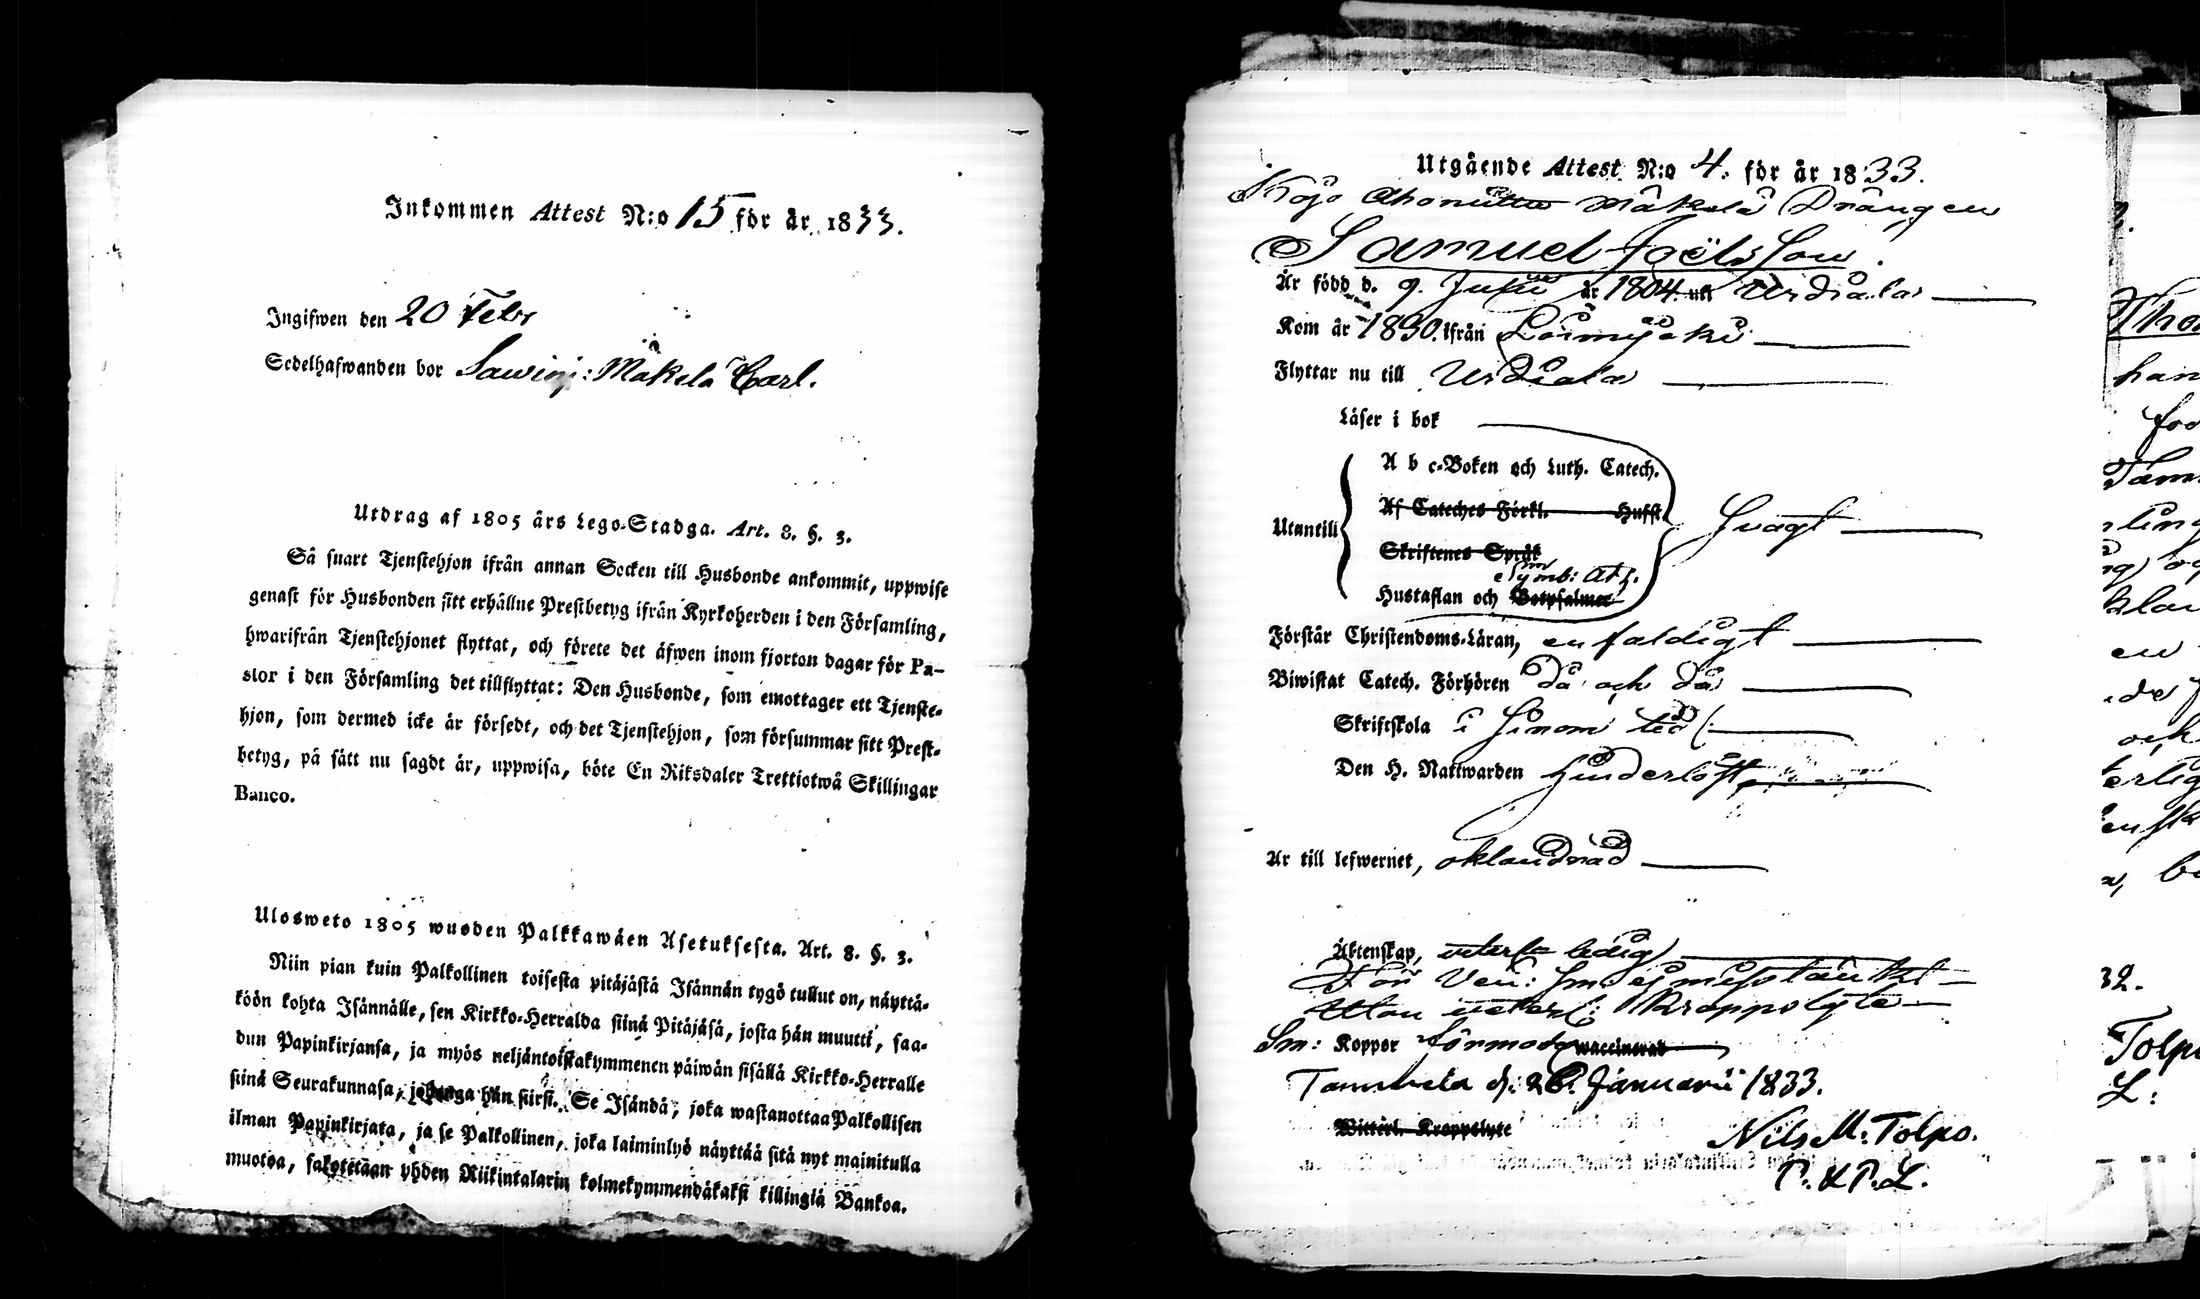 Inkommen Attest N:o 15 för år 1833.
Ingifwen den 20 Febr
Sedelhafwanden bor Sawiej: Mäkelä Carl.
Utdrag af 1805 års Lego-Stadga. Art. 8. §. 3.
Så snart Tjenstehjon ifrån annan Socken till Husbonde ankommit, uppwise
genast för Husbonden sitt erhållne Prestbetyg ifrån Kyrkoherden i den Församling,
hwarifrån Tjenstehjonet flyttat, och förete det äfwen inom fjorton dagar för Pa-
stor i den Församling det tillflyttat: Den Husbonde, som emottager ett Tjenste-
hjon, som dermed icke är försedt, och det Tjenstehjon, som försummar sitt Prest-
betyg, på sätt nu sagdt är, uppwisa, böte En Riksdaler Trettiotwå Skillingar
Banco.
Ulosweto 1805 wuoden Palkkawäen Asetuksesta. Art. 8. §. 3.
Niin pian kuin Palkollinen toisesta pitäjästä Isännän tygö tullut on, näyttä-
köön kohta Isännälle, sen Kirkko-Herralda siinä Pitäjäsä, josta hän muutti, saa-
dun Papinkirjansa, ja myös neljäntoistakymmenen päiwän sisällä Kirkko-Herralle
siinä Seurakunnasa, johonga hän siirsi. Se Isändä, joka wastanottaa Palkollisen
ilman Papinkirjata, ja se Palkollinen, joka laiminlyö näyttää sitä nyt mainitulla
muotoa, sakotetaan yhden Riikintalarin kolmekymmendäkaksi killingiä Bankoa.
Utgående Attest N:o 4. för år 1833.
Mäkelä Drängen
Samuel Joëlsson.
Är född d. 9. år 1804. uti Urdiala
Kom år 1830. ifrån Loimijoki
Flyttar nu till Urdiala
Läser i bok
A b c-Boken och Luth. Catech.
Af Cateches Förkl. Hufst.
Utantill Svagt
Skriftenes Språk
Symb: Ath.
Hustaflan och Botpsalmer
Förstår Christendoms-Läran, enfaldigt
Biwistat Catech. Förhören då och då
Skriftskola i sinom tid
Den H. Nattwarden hinderlöst
Är till lefwernet, oklandrad
Äktenskap, ledig
För Ven: Sm: ej misstänkt
Utan Kroppslyte
Sm: Koppor förmodl waccinerad
Tammela d. 26. Januarii 1833.
Witterl. Kroppslyte
Nils M. Tolpo.
P. & P. L.
32.
Tolpo
L: